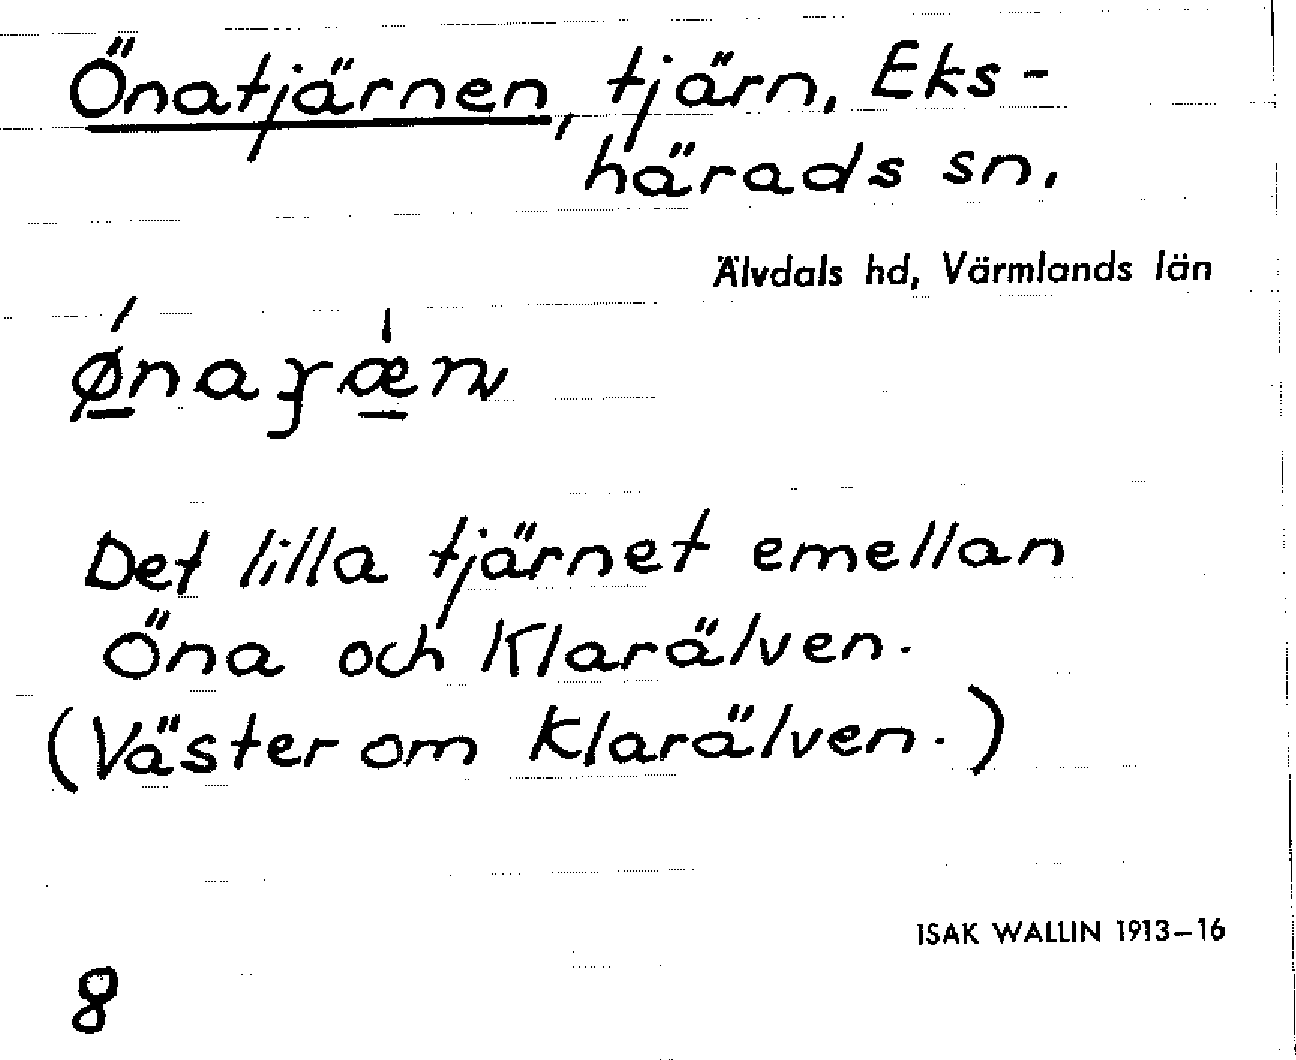 Önatjärnen, tjärn, Eks-
härads sn.
Älvdals hd, Värmlands län
Det lilla tjärnet emellan
Öna och Klarälven.
(Väster om Klarälven.)
ISAK WALLIN 1913–16
8